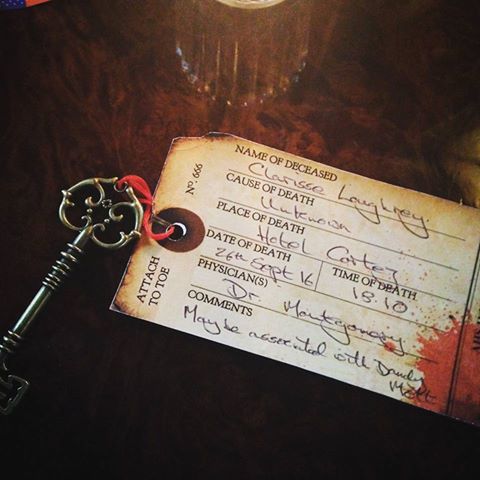 No. 666
ATTACH TO TOE
NAME OF DECEASED
Clarisse Loughrey.
CAUSE OF DEATH
Unknown
PLACE OF DEATH
Hotel Cortez
DATE OF DEATH
26th Sept 16
TIME OF DEATH
18.10
PHYSICIAN(S)
Dr. Montgomery
COMMENTS
Maybe associated with Dandy
Mott